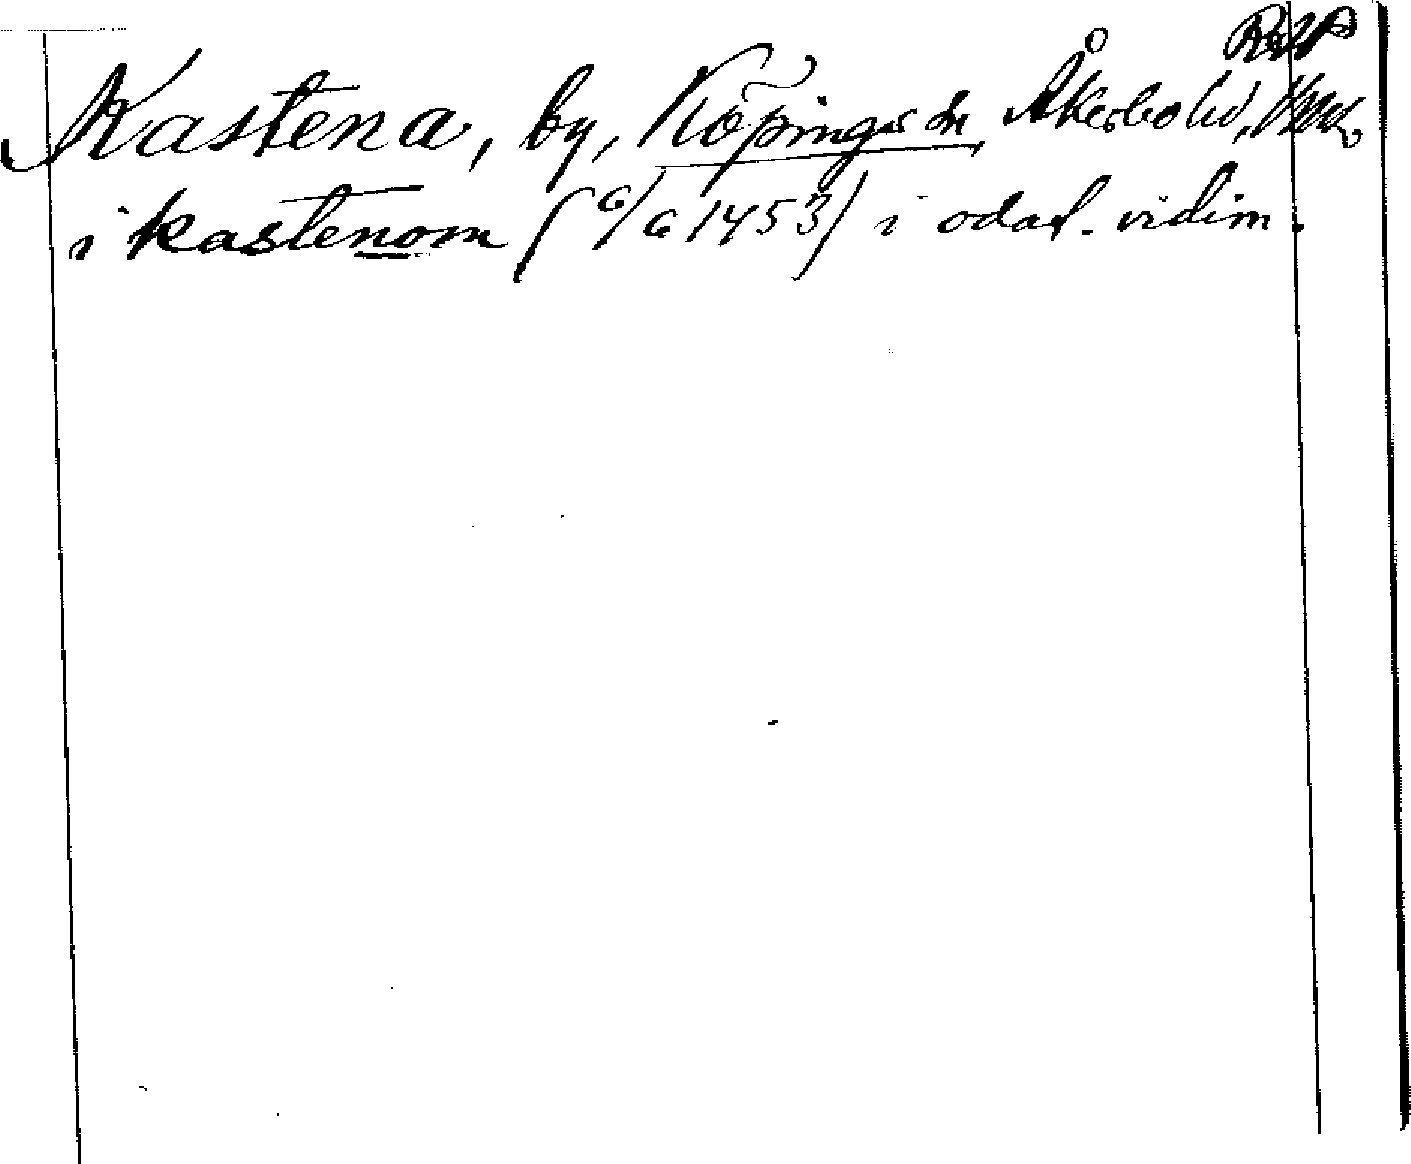 RAP
Kastena, by, Köpings sn, Åkerbo hd, Vml.
i kastenom (6/6 1453) i odat. vidim.